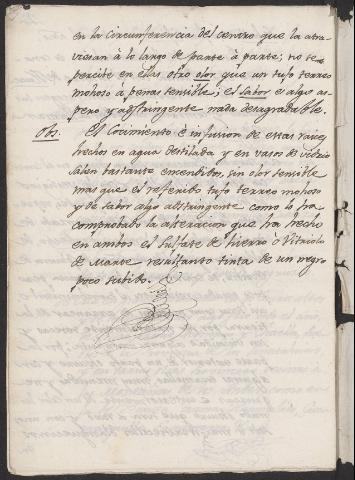 en la circunferencia del centro que la atra-
viesan à lo largo de parte à parte; no se
percibe en ellas otro olor que un tufo terreo
mohoso à penas sensible; el sabor es algo as-
pero y adstringente nada desagradable.
Obs. El Cocimiento è infusion de estas raices
hechos en agua destilada y en vasos de vidrio
salen bastante encendidos, sin olor sensible
mas que el referido tufo terreo mohoso
y de sabor algo adstringente como lo ha
comprobado la alteracion que ha hecho
en ambos el sulfate de hierro ò Vitriolo
de Marte resultando tinta de un negro
poco subido.